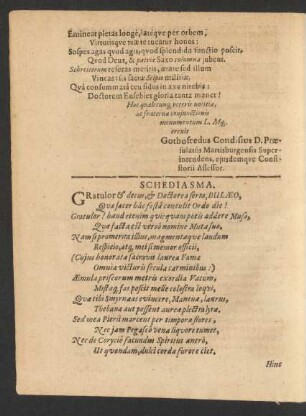 Emineat pietas longè, latéque per orbem,
Virtutisque tuæ te tueatur honos:
Sospes agas quod agis, quod splendida functio poscit,
Quod Deus, & patriæ Saxo columna jubent.
Schreiterum referas meritis, ætate sed illum
Vincas: sis sacræ Scipio militiæ.
Quâ consummatâ ceu sidus in axe niteb is:
Doctorem Eusebies gloria tanta manet!
Hoc qualecunq; veteris notitiæ,
ac fraternæ conjunctionis
monumentum L. Mq;
erexit
Gothofredus Condisius D. Præ-
sulatûs Martisburgensis Super-
intendens, ejusdemque Consi-
storii Assessor.
SCHEDIASMA.
GRatulor & decus, & Doctoreo serta, BULÆO,
Qvæ sacer hâc festâ contulit Ordo die!
Gratulor? haud etenim qvicqvam petis addere Musa,
Qvæ facta est verò nomine Muta suo.
Nam si promeritis titulos, augmentaqve laudum
Respicio, atq; mei si memor officii,
(Cujus honorata sacravit laurea Fama
Omnia victuris secula carminibus:)
Æmula priscorum metris exordia Vatum,
Mystaq; fas poscit melle colostra loqvi.
Qvæ tibi Smyrnæas evincere, Mantua, laurus,
Thebana aut possent aurea plectra lyræ.
Sed mea Pierii marcent per tempora flores,
Nec jam Pegaseo vena liqvore tumet,
Nec de Corycio facundum Spiritus antro,
Ut qvondam, dulci corda furore ciet,
Hinc